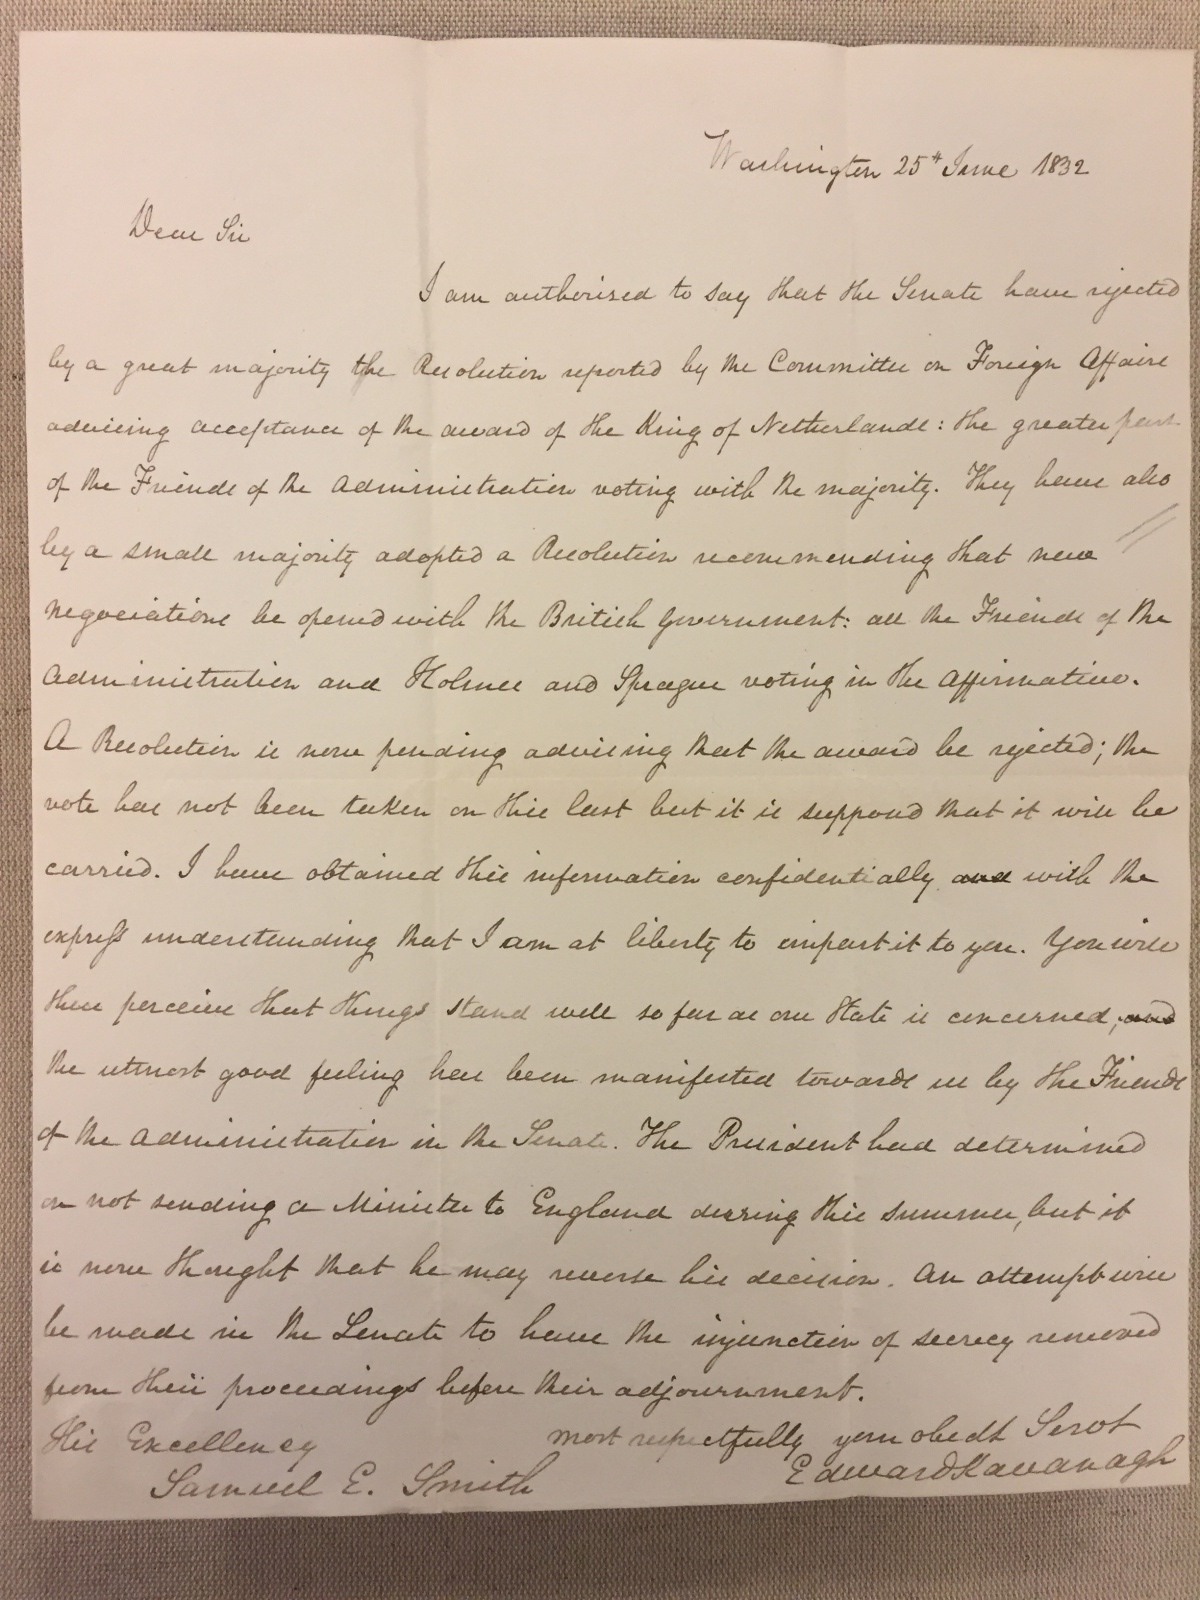 Washington 25th June 1832
Dear Sir
I am authorised to say that the Senate have rejected
by a great majority the Resolution reported by the Committee on Foreign Affairs
advising acceptance of the award of the King of Netherlands: the greater part
of the Friends of the Administration voting with the majority. They have also
by a small majority adopted a Resolution recommending that new
negociations be opened with the British Government: all the Friends of the
Administration and Holmes and Sprague voting in the affirmative.
A Resolution is now pending advising that the award be rejected; the
vote has not been taken on this last but it is supposed that it will be
carried. I have obtained this information confidentially and with the
express understanding that I am at liberty to impart it to you. You will
thus perceive that things stand well so far as our State is concerned, and
the utmost good feeling has been manifested towards us by the Friends
of the Administration in the Senate. The President had determined
on not sending a Minister to England during this summer, but it
is now thought that he may reverse his decision. An attempt will
be made in the Senate to have the injunction of secrecy removed
from their proceedings before their adjournment.
His Excellency most respectfully your obedt Servt
Samuel E. Smith Edward Kavanagh